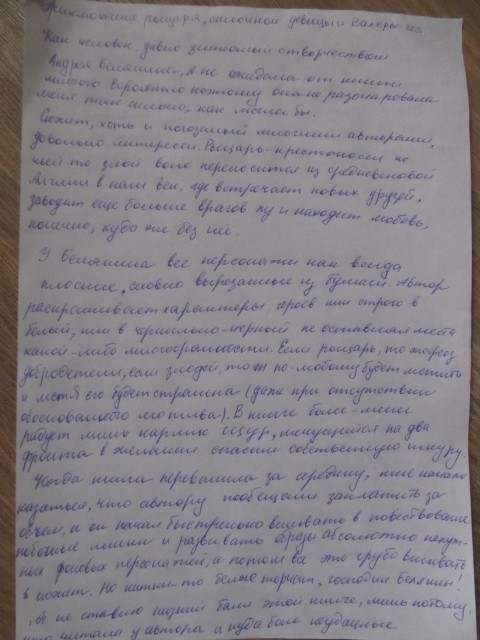 Приключения рыцаря, сказочной девицы и
Как человек, давно знакомый с творчеством
Андрея Белянина, я не ожидала от книги
многого. Вероятно поэтому она не разочаровала
меня так сильно, как могла бы.
Сюжет, хоть и многими авторами,
довольно интересен. Рыцарь-крестоносец по
чьей-то злой воле переносится из средневековой
Англии в наш век, где встречает новых друзей,
заводит еще больше врагов ну и находит любовь,
конечно, куда же без нее.
У Белянина все персонажи как всегда
плоские, словно вырезанные из бумаги. Автор
раскрашивает характеры героев или строго в
белый, или в чернильно-черный не оставляя места
какой-либо многогранности. Если рыцарь, то
добродетели, если злодей, то ж по-любому будет мстить
и местя его будет страшна (даже при отсутствии
обоснованного мотива). В книге более-менее
радует лишь карлик щур, на два
фронта в желании спасти собственную шкуру.
Когда книга перевалила за середину, мне начало
казаться, что автору пообещали заплатить за
объем, и он начал быстренько вшивать в повествование
побочные линии и развивать образы абсолютно
фоновых персонажей, а потом все это грубо вшивать
в сюжет. Но нитки-то белые торчат, господин Белянин!
я не ставлю низший балл этой книге, лишь потому,
что читала у автора и куда более неудачные